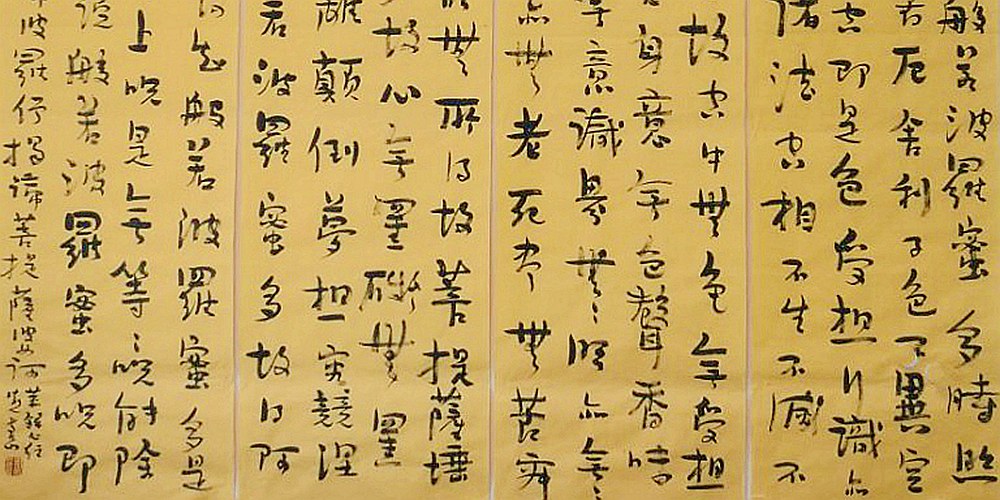 般若波羅蜜多時照
厄舍利子色不異空
空即是色受想行識亦
諸法空相不生不滅不
故空中無色無受想
身意無色聲香味
無意識界無〻明亦無〻
亦無老死盡無苦
無所得故菩提薩埵
故心無罣礙無罣
離顛倒夢想究竟涅
若波羅蜜多故得阿
知般若波羅蜜多是
上呪是無等〻呪能除
說般若波羅蜜多呪即
波羅僧揭諦菩提薩婆訶